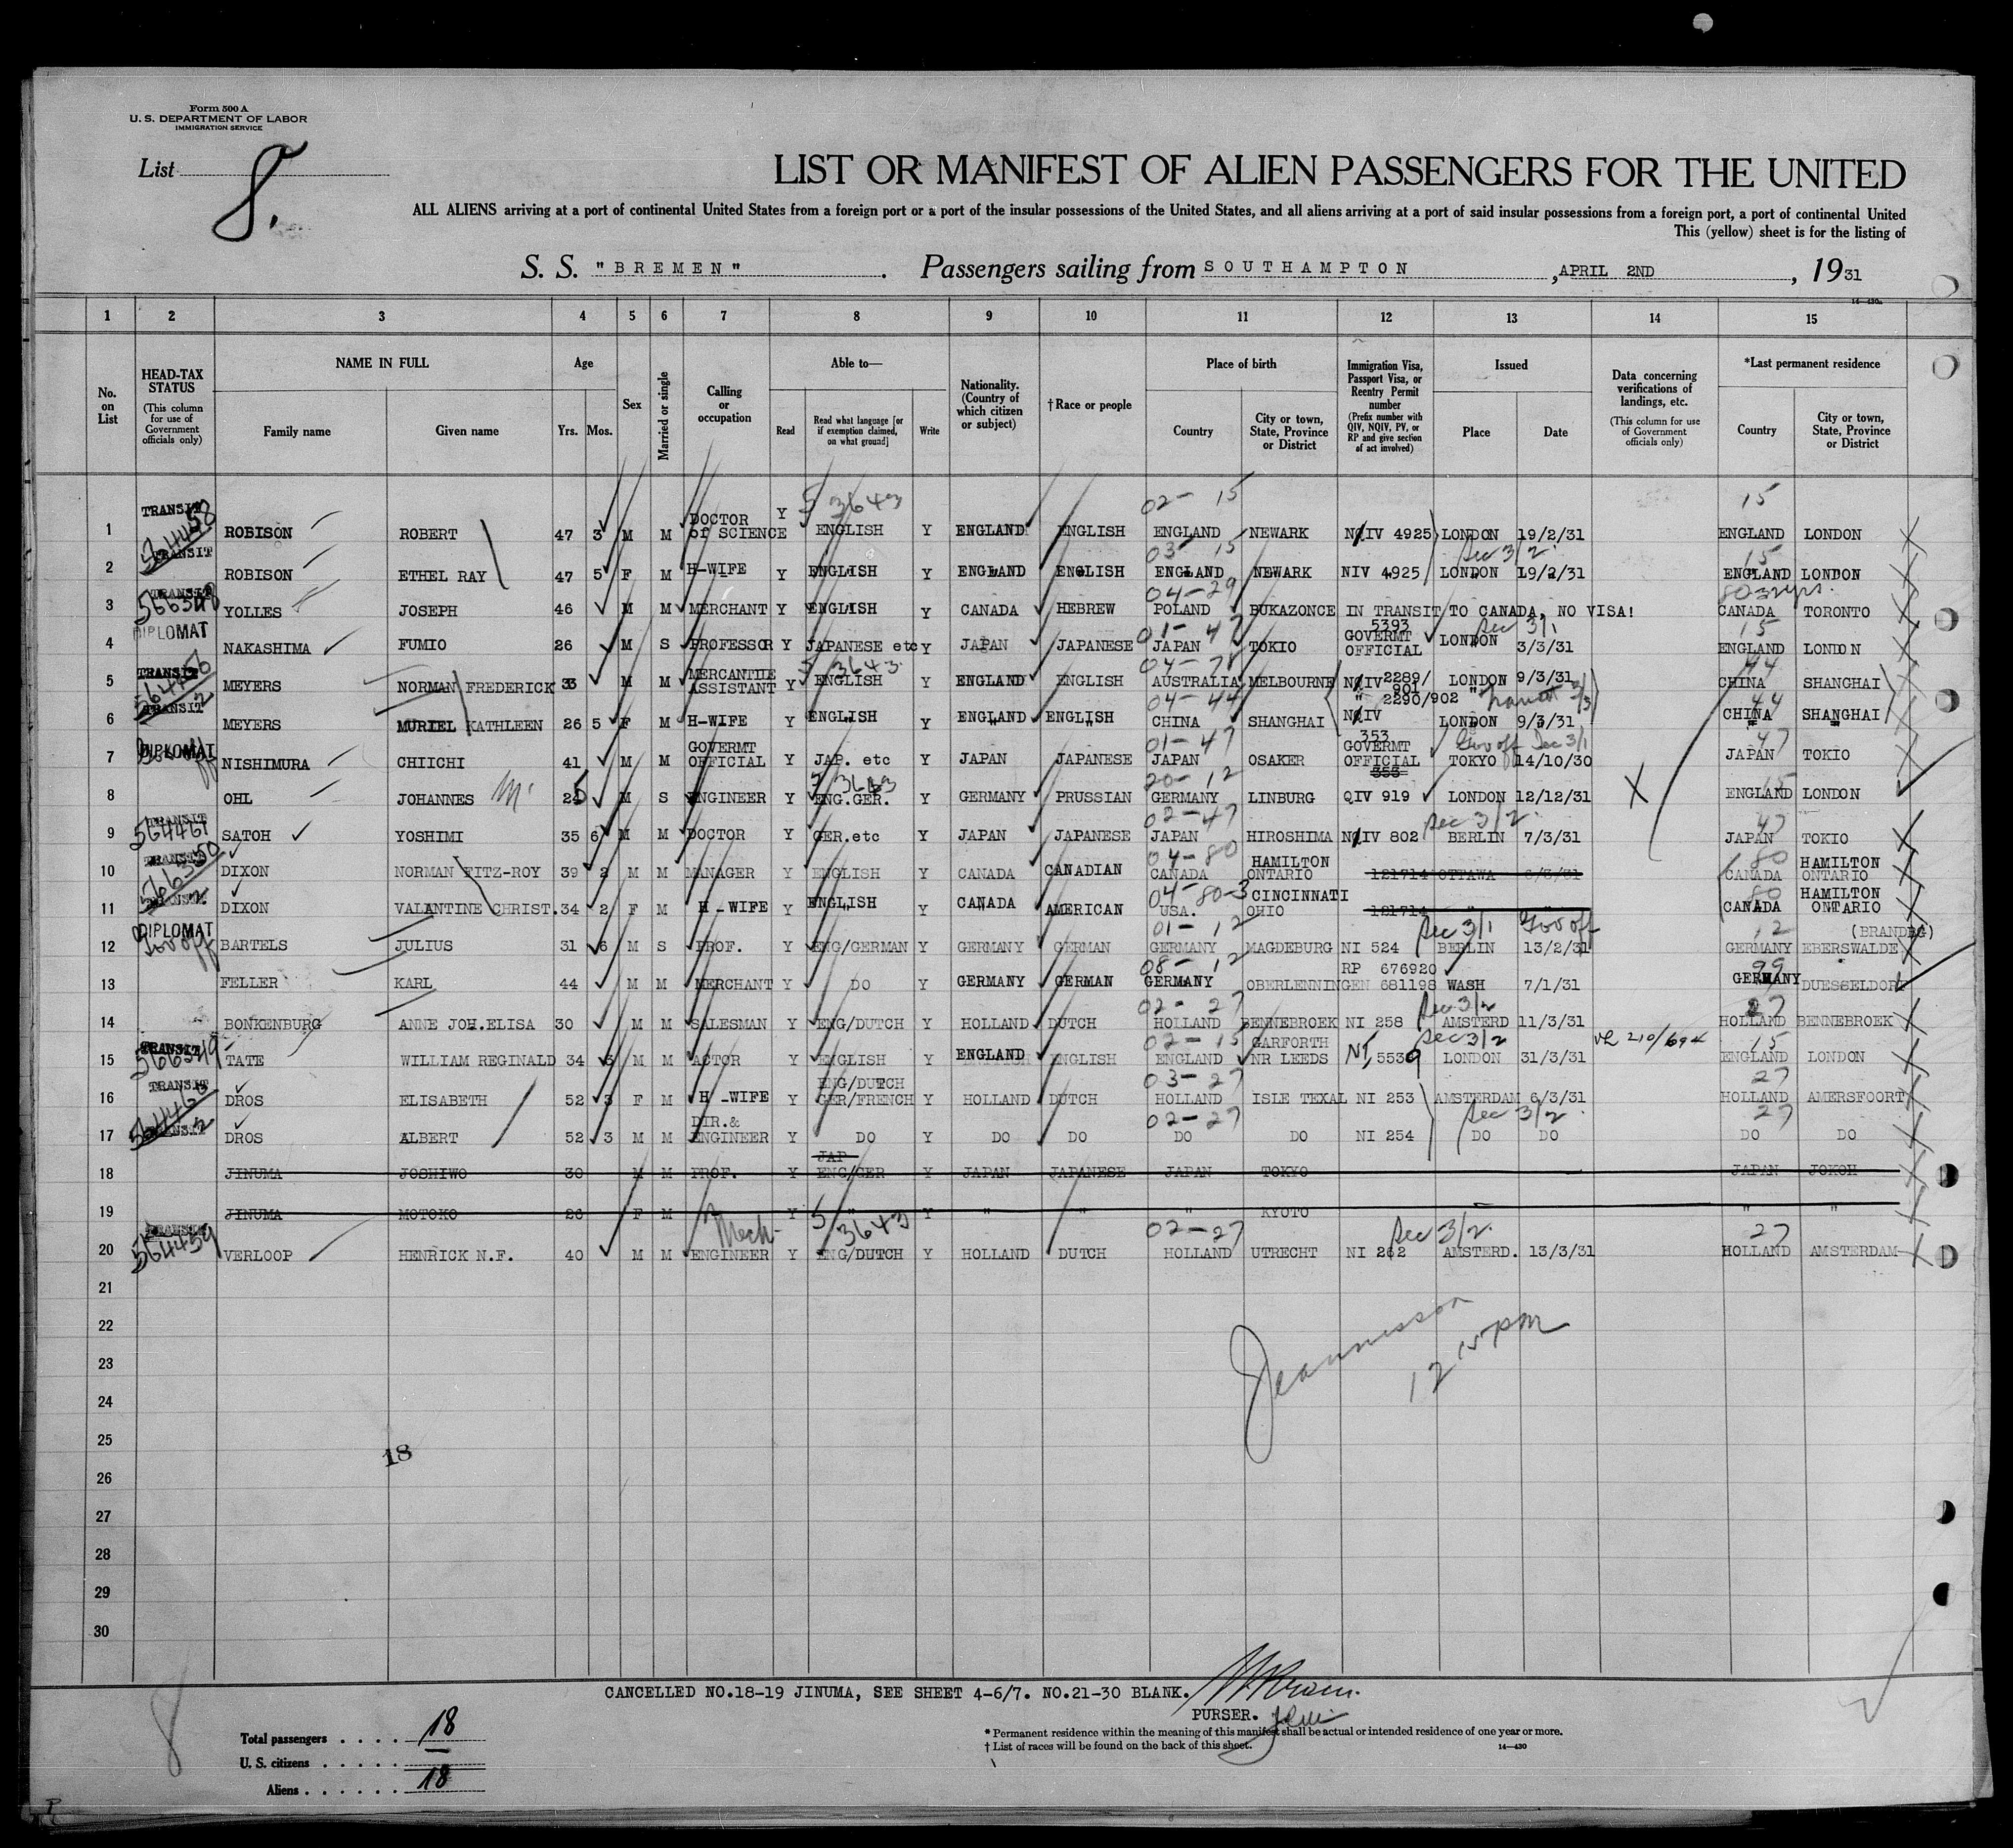 Form 500 A
U. S. DEPARTMENT OF LABOR
IMMIGRATION SERVICE
List 8.
LIST OR MANIFEST OF ALIEN PASSENGERS FOR THE UNITED
ALL ALIENS arriving at a port of continental United States from a foreign port or a port of the insular possessions of the United States, and all aliens arriving at a port of said insular possessions from a foreign port, a port of continental United
This (yellow) sheet is for the listing of
S. S. "BREMEN". Passengers sailing from SOUTHAMPTON, APRIL 2ND, 1931
14-430a
1 2 3 4 5 6 7 8 9 10 11 12 13 14 15
No. on List
HEAD-TAX STATUS (This column for use of Government officials only)
NAME IN FULL
Family name Given name
Age Yrs. Mos.
Sex
Married or single
Calling or occupation
Able to—
Read Read what language [or if exemption claimed, on what ground] Write
Nationality. (Country of which citizen or subject)
†Race or people
Place of birth
Country City or town, State, Province or District
Immigration Visa, Passport Visa, or Reentry Permit number (Prefix number with QIV, NQIV, PV, or RP and give section of act involved)
Issued
Place Date
Data concerning verifications of landings, etc. (This column for use of Government officials only)
*Last permanent residence
Country City or town, State, Province or District
5 3643 02-15 15
1 TRANSIT 564458 ROBISON ROBERT 47 3 M M DOCTOR of SCIENCE Y ENGLISH Y ENGLAND ENGLISH ENGLAND NEWARK NQIV 4925 LONDON 19/2/31 ENGLAND LONDON
03-15 Sec 3/2 15
2 TRANSIT ROBISON ETHEL RAY 47 5 F M H-WIFE Y ENGLISH Y ENGLAND ENGLISH ENGLAND NEWARK NIV 4925 LONDON 19/2/31 ENGLAND LONDON
04-29 80
3 TRANSIT 566348 YOLLES JOSEPH 46 M M MERCHANT Y ENGLISH Y CANADA HEBREW POLAND BUKAZONCE IN TRANSIT TO CANADA, NO VISA! CANADA TORONTO
01-47 Sec 3/1 15
4 DIPLOMAT NAKASHIMA FUMIO 26 M S PROFESSOR Y JAPANESE etc Y JAPAN JAPANESE JAPAN TOKIO 5393 GOVERMT OFFICIAL LONDON 3/3/31 ENGLAND LONDON
5 3643 04-78 44
5 TRANSIT MEYERS NORMAN FREDERICK 33 M M MERCANTILE ASSISTANT Y ENGLISH Y ENGLAND ENGLISH AUSTRALIA MELBOURNE NQIV 2289/901 LONDON 9/3/31 CHINA SHANGHAI
04-44 " 2290/902 " Transit 3/3 44
6 TRANSIT MEYERS MURIEL KATHLEEN 26 5 F M H-WIFE Y ENGLISH Y ENGLAND ENGLISH CHINA SHANGHAI NQIV LONDON 9/3/31 CHINA SHANGHAI
01-47 353 Gov off Sec 3/1 47
7 DIPLOMAT Gov off NISHIMURA CHIICHI 41 M M GOVERMT OFFICIAL Y JAP. etc Y JAPAN JAPANESE JAPAN OSAKER GOVERMT OFFICIAL 353 TOKYO 14/10/30 JAPAN TOKIO
5 3643 20-12 15
8 OHL JOHANNES 25 M S ENGINEER Y ENG.GER. Y GERMANY PRUSSIAN GERMANY LINBURG QIV 919 LONDON 12/12/31 X ENGLAND LONDON
02-47 Sec 3/2 47
9 TRANSIT 564461 SATOH YOSHIMI 35 6 M M DOCTOR Y GER.etc Y JAPAN JAPANESE JAPAN HIROSHIMA NQIV 802 BERLIN 7/3/31 JAPAN TOKIO
04-80 80
10 TRANSIT 566350 DIXON NORMAN FITZ-ROY 39 2 M M MANAGER Y ENGLISH Y CANADA CANADIAN CANADA HAMILTON ONTARIO 121714 OTTAWA 6/3/31 CANADA HAMILTON ONTARIO
04-80-3 80
11 TRANSIT DIXON VALANTINE CHRIST. 34 2 F M H-WIFE Y ENGLISH Y CANADA AMERICAN USA. CINCINNATI OHIO 121714 " " CANADA HAMILTON ONTARIO
01-12 Sec 3/1 Gov off 12 (BRANDBG)
12 DIPLOMAT Gov off BARTELS JULIUS 31 6 M S PROF. Y ENG/GERMAN Y GERMANY GERMAN GERMANY MAGDEBURG NI 524 BERLIN 13/2/31 GERMANY EBERSWALDE
08-12 RP 676920 99
13 FELLER KARL 44 M M MERCHANT Y DO Y GERMANY GERMAN GERMANY OBERLENNINGEN 681198 WASH 7/1/31 GERMANY DUESSELDORF
02-27 Sec 3/2 27
14 BONKENBURG ANNE JOH.ELISA 30 M M SALESMAN Y ENG/DUTCH Y HOLLAND DUTCH HOLLAND BENNEBROEK NI 258 AMSTERD 11/3/31 HOLLAND BENNEBROEK
02-15 Sec 3/2 15
15 TRANSIT 566349 TATE WILLIAM REGINALD 34 3 M M ACTOR Y ENGLISH Y ENGLAND ENGLISH ENGLAND GARFORTH NR LEEDS NI 5539 LONDON 31/3/31 VL 210/694 ENGLAND LONDON
03-27 27
16 TRANSIT 564460 DROS ELISABETH 52 3 F M H-WIFE Y ENG/DUTCH GER/FRENCH Y HOLLAND DUTCH HOLLAND ISLE TEXAL NI 253 AMSTERDAM 6/3/31 HOLLAND AMERSFOORT
02-27 Sec 3/2 27
17 TRANSIT DROS ALBERT 52 3 M M DIR.& ENGINEER Y DO Y DO DO DO DO NI 254 DO DO DO DO
18 JINUMA JOSHIWO 30 M M PROF. Y JAP ENG/GER Y JAPAN JAPANESE JAPAN TOKYO JAPAN JOKOH
19 JINUMA MOTOKO 26 F M " Y " Y " " " KYOTO " "
Mech- 5 3643 02-27 Sec 3/2 27
20 TRANSIT 564459 VERLOOP HENRICK N.F. 40 M M ENGINEER Y ENG/DUTCH Y HOLLAND DUTCH HOLLAND UTRECHT NI 262 AMSTERD. 13/3/31 HOLLAND AMSTERDAM
21
22
12 15 PM
23
24
25
18
26
27
28
29
30
CANCELLED NO.18-19 JINUMA, SEE SHEET 4-6/7. NO.21-30 BLANK.
PURSER.
8
Total passengers . . . . 18
U. S. citizens . . . . .
Aliens . . . . . . 18
* Permanent residence within the meaning of this manifest shall be actual or intended residence of one year or more.
† List of races will be found on the back of this sheet.
14—430